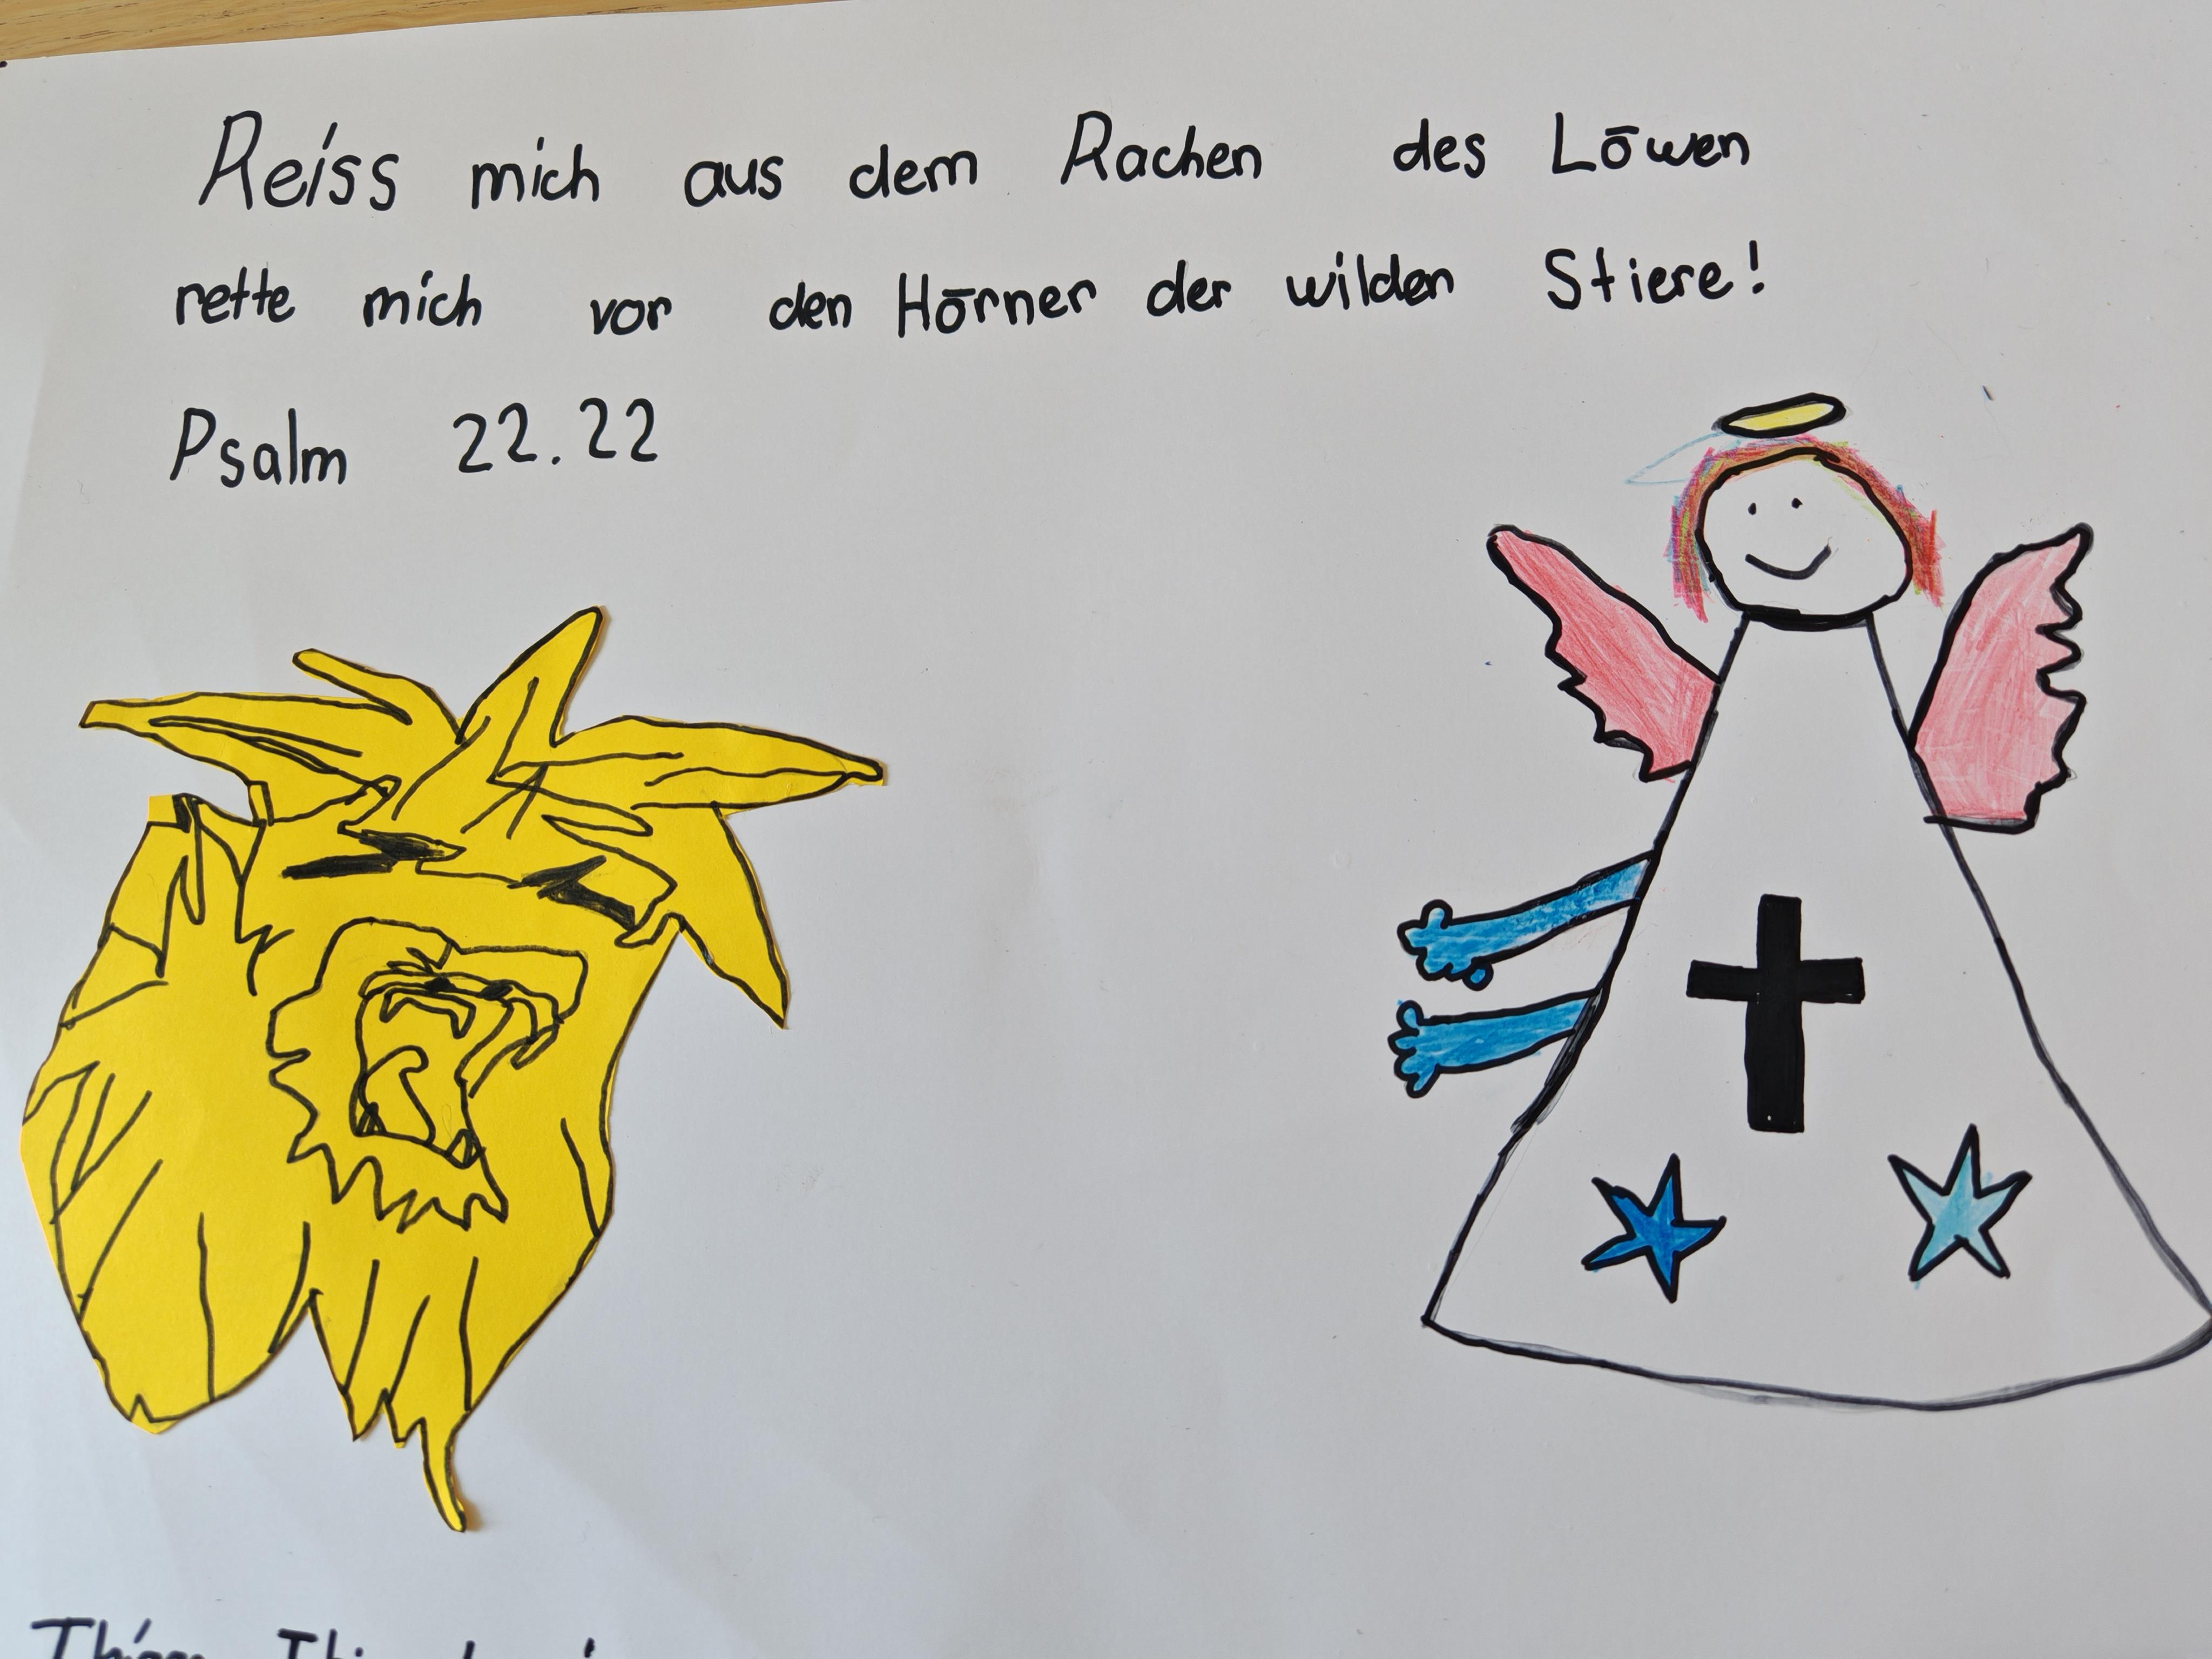 Reiss mich aus dem Rachen des Löwen
rette mich vor den Hörner der wilden Stiere!
Psalm 22.22